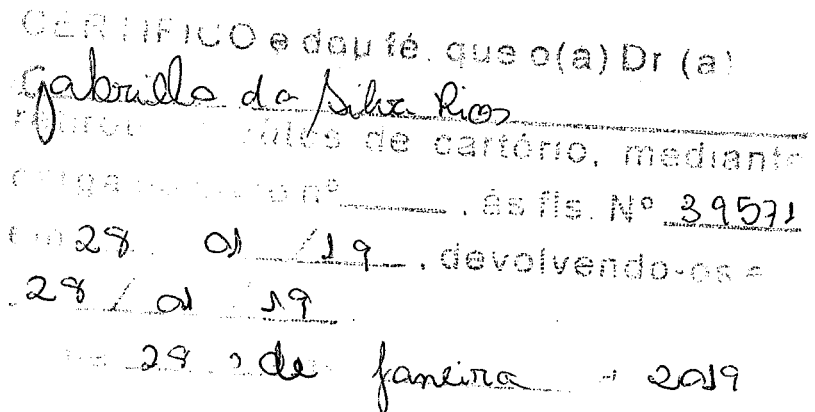 CERTIFICO e dou fé, que o(a) Dr (a)
Gabriella da Silva Rios
retirou de cartório, mediante
carga nº , às fls. Nº 39571
em 28 01 / 19 , devolvendo-os
28 / 01 19
28 de Janeiro 2019